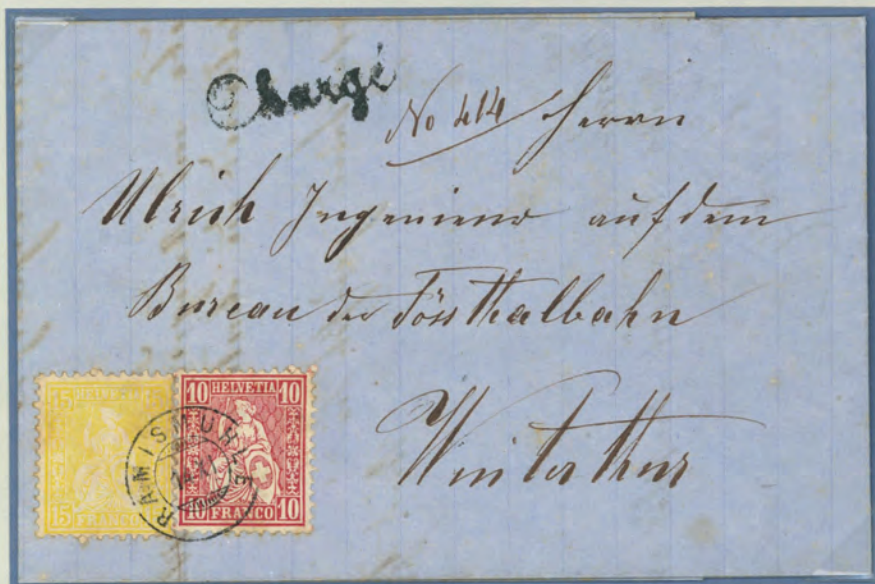 Chargé
No 414 Herrn
Ulrich Ingenieur auf dem
Bureau der Tössthalbahn
Winterthur
15 HELVETIA 15
15 FRANCO 15
10 HELVETIA 10
10 FRANCO 10
RÄMISMÜHLE